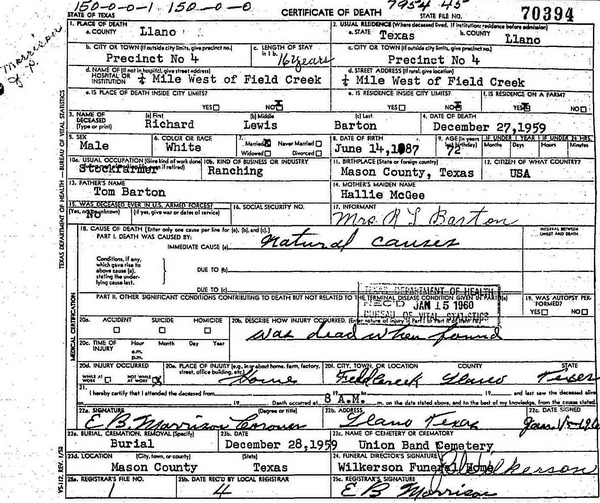 150-0-0-1 150-0-0 7954 45
STATE OF TEXAS CERTIFICATE OF DEATH STATE FILE NO. 70394
1. PLACE OF DEATH 2. USUAL RESIDENCE (Where deceased lived. If institution: residence before admission)
a. COUNTY Llano a. STATE Texas b. COUNTY Llano
b. CITY OR TOWN (If outside city limits, give precinct no.) c. LENGTH OF STAY c. CITY OR TOWN (If outside city limits, give precinct no.)
Precinct No 4 16 years Precinct No 4
d. NAME OF (If not in hospital, give street address) HOSPITAL OR INSTITUTION d. STREET ADDRESS (If rural, give location)
¼ Mile West of Field Creek ¼ Mile West of Field Creek
e. IS PLACE OF DEATH INSIDE CITY LIMITS? e. IS RESIDENCE INSIDE CITY LIMITS? f. IS RESIDENCE ON A FARM?
YES NO YES NO YES NO
3. NAME OF DECEASED (Type or print) (a) First (b) Middle (c) Last 4. DATE OF DEATH
Richard Lewis Barton December 27, 1959
5. SEX 6. COLOR OR RACE 7. Married Never Married Widowed Divorced 8. DATE OF BIRTH 9. AGE (In years IF UNDER 1 YEAR IF UNDER 24 HRS.
Male White June 14, 1887 72 Months Days Hours Minutes
10a. USUAL OCCUPATION (Give kind of work done 10b. KIND OF BUSINESS OR INDUSTRY 11. BIRTHPLACE (State or foreign country) 12. CITIZEN OF WHAT COUNTRY?
Stockfarmer Ranching Mason County, Texas USA
13. FATHER'S NAME 14. MOTHER'S MAIDEN NAME
Tom Barton Hallie McGee
15. WAS DECEASED EVER IN U.S. ARMED FORCES? 16. SOCIAL SECURITY NO. 17. INFORMANT
(Yes, no, or unknown) (If yes, give war or dates of service)
No Mrs. R L Barton
18. CAUSE OF DEATH (Enter only one cause per line for (a), (b), and (c).) INTERVAL BETWEEN ONSET AND DEATH
PART I. DEATH WAS CAUSED BY:
IMMEDIATE CAUSE (a) Natural causes
Conditions, if any, which gave rise to above cause (a), stating the underlying cause last.
DUE TO (b)
DUE TO (c)
TEXAS DEPARTMENT OF HEALTH
REC'D JAN 15 1960
BUREAU OF VITAL STATISTICS
PART II. OTHER SIGNIFICANT CONDITIONS CONTRIBUTING TO DEATH BUT NOT RELATED TO THE TERMINAL DISEASE CONDITION GIVEN IN PART I(a) 19. WAS AUTOPSY PERFORMED?
YES NO
20a. ACCIDENT SUICIDE HOMICIDE 20b. DESCRIBE HOW INJURY OCCURRED. (Enter nature of injury in Part I or Part II of item 18.)
was dead when found
20c. TIME OF INJURY Hour Month Day Year
a.m.
p.m.
20d. INJURY OCCURRED 20e. PLACE OF INJURY (e.g., in or about home, farm, factory, street, office building, etc.) 20f. CITY, TOWN, OR LOCATION COUNTY STATE
WHILE AT WORK NOT WHILE AT WORK Home Field Creek Llano Texas
21. I hereby certify that I attended the deceased from
8 A.M.
22a. SIGNATURE 22b. ADDRESS 22c. DATE SIGNED
E B Morrison Coroner Llano Texas
23a. BURIAL, CREMATION, REMOVAL (Specify) 23b. DATE 23c. NAME OF CEMETERY OR CREMATORY
Burial December 28, 1959 Union Band Cemetery
23d. LOCATION (State) 24. FUNERAL DIRECTOR'S SIGNATURE
Mason County Texas Wilkerson Funeral Home Wilkerson
25a. REGISTRAR'S FILE NO. 25b. DATE REC'D BY LOCAL REGISTRAR 25c. REGISTRAR'S SIGNATURE
1 4 E B Morrison
TEXAS DEPARTMENT OF HEALTH—BUREAU OF VITAL STATISTICS
MEDICAL CERTIFICATION
VS-112, REV. 1/58
Morrison
J. P.